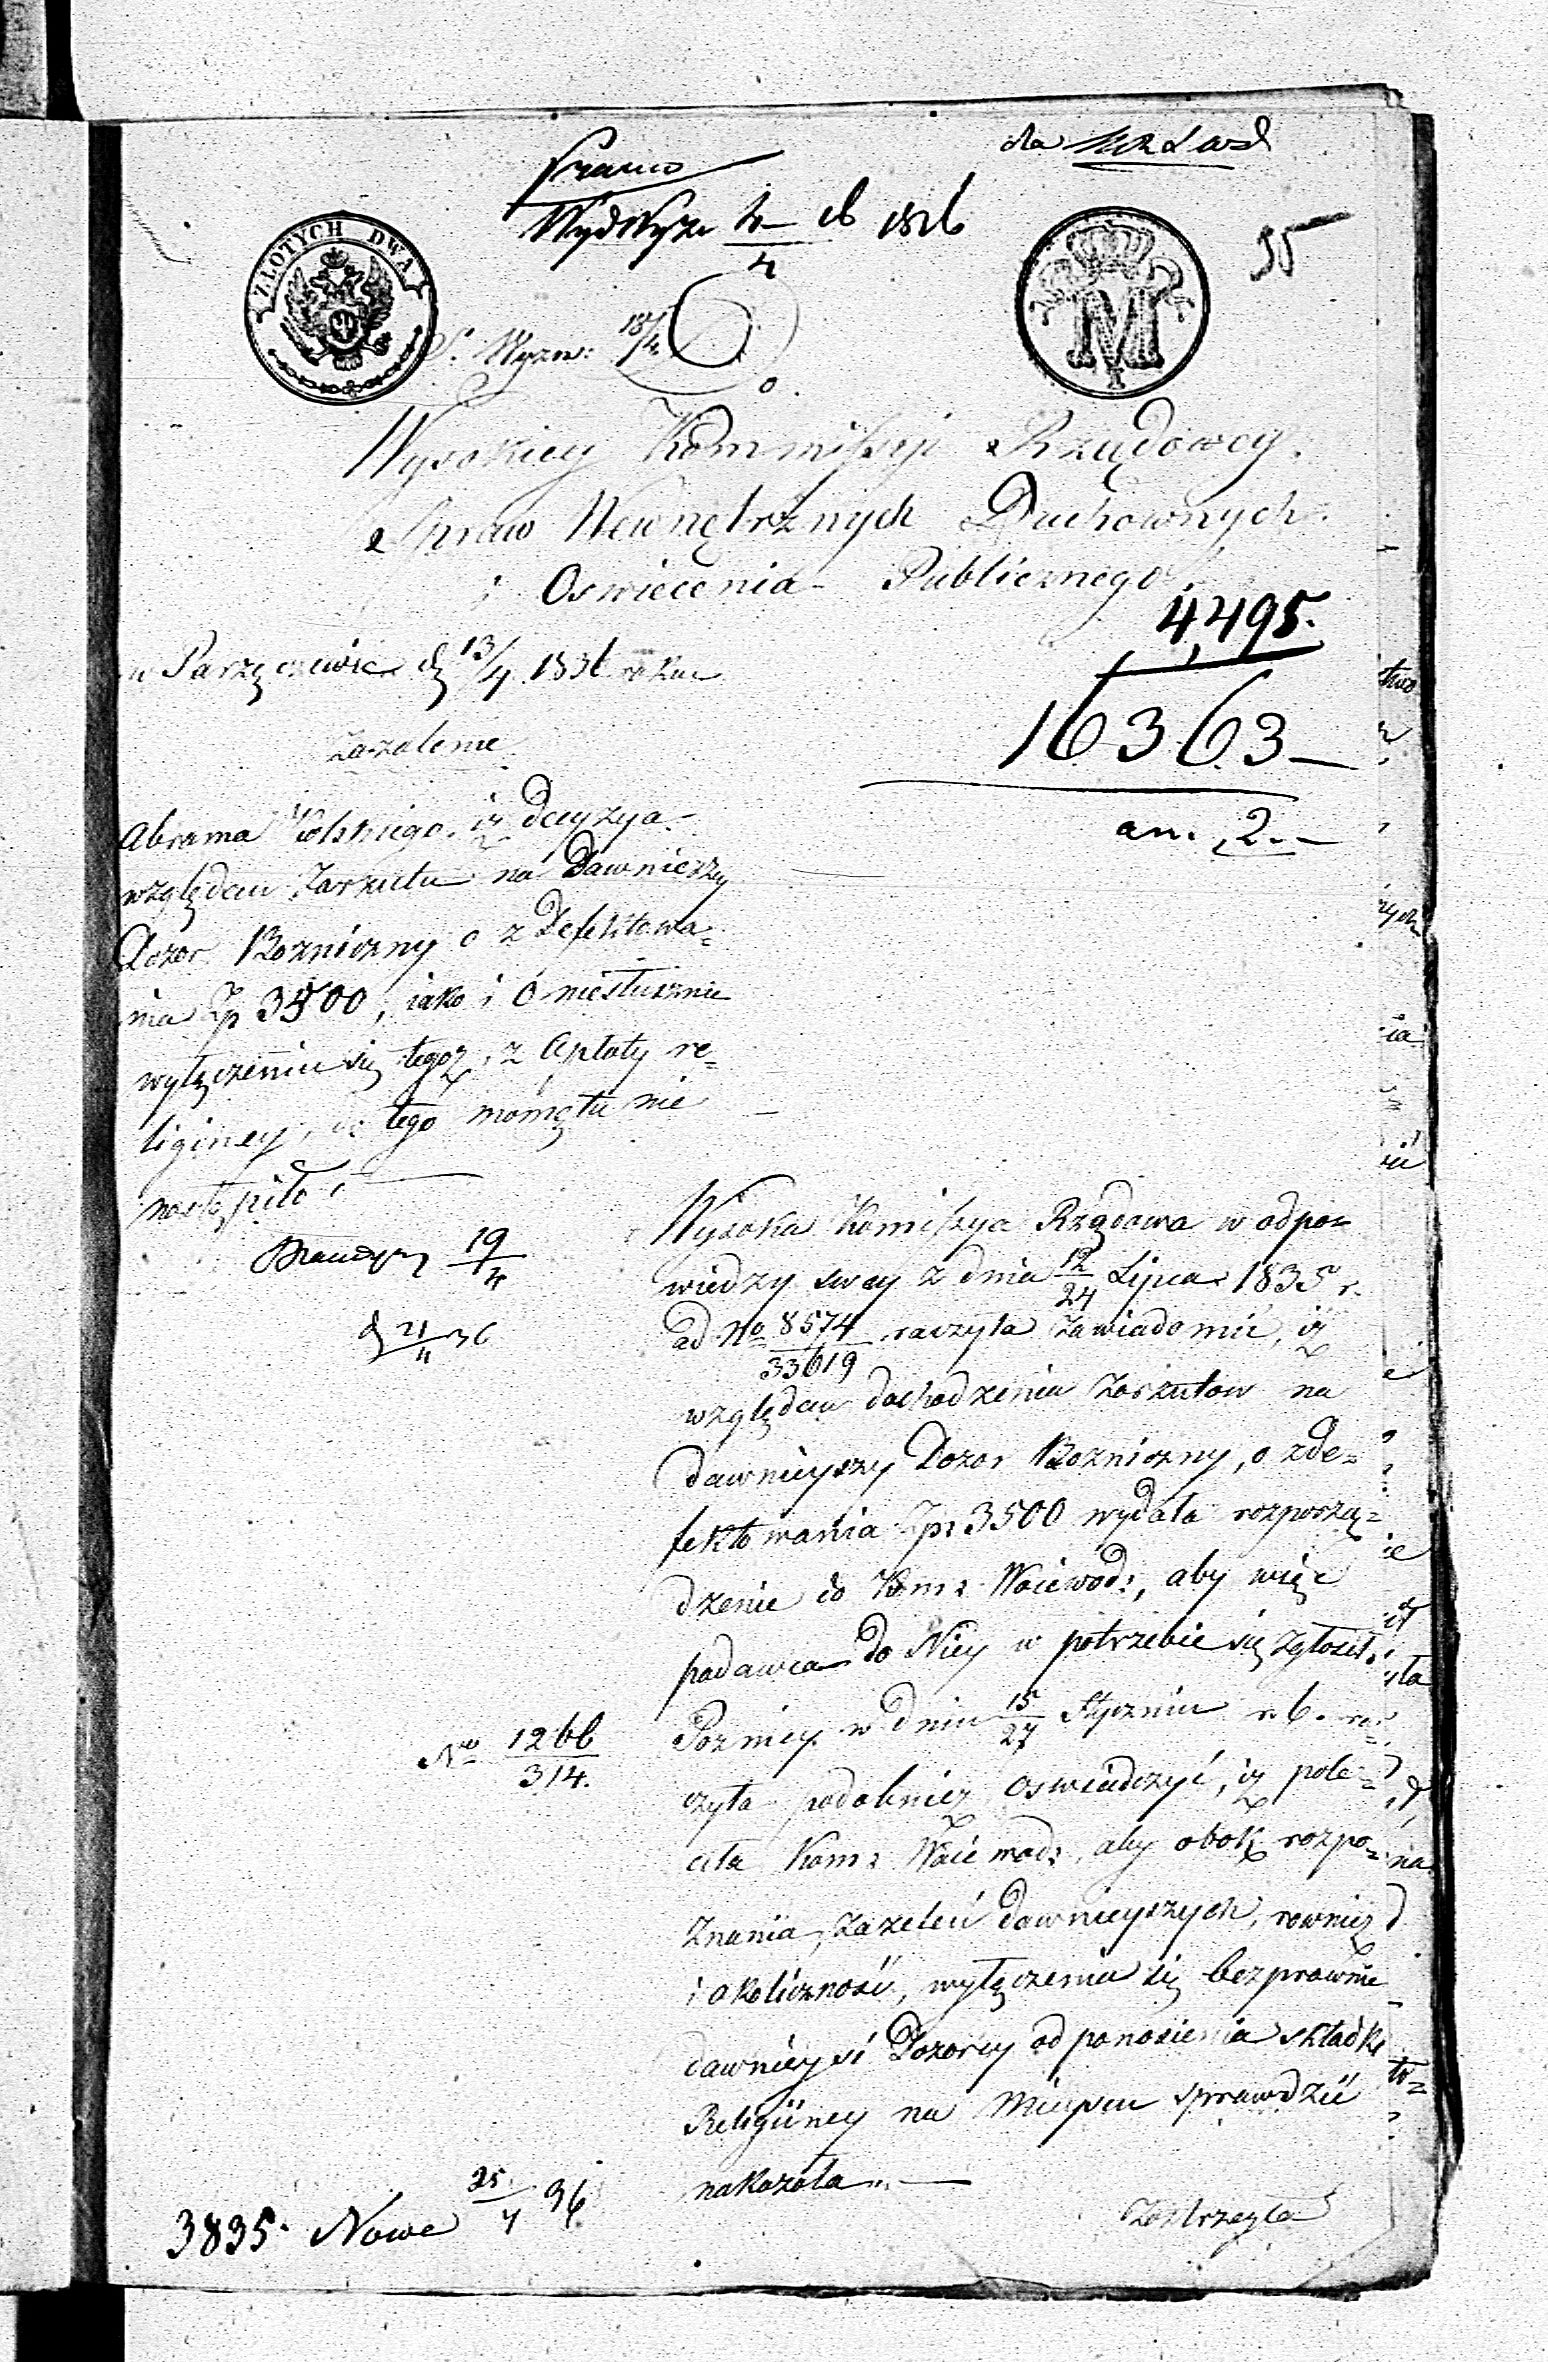 dla
Franco
WydWyzn 4 1836
4
55
ZŁOTYCH DWA
M
I
S. Wyzn: 18/4
Wysokiey Kommissyi Rządowey
Spraw Wewnętrznych Duchownych
i Oswiecenia Publicznego
4,495.
w Parzęczewie d 13/4 1836 roku
16363
an. 2.
Zazalenie
Abrama Wolskiego, iż decyzya
względem Zarzutu na dawnieszy
Dozor Bozniczny o zdefektowa=
nia Zp 3500, iako i o niesłusznie
wyłączeniu się tegoż, z Opłaty re=
liginey, do tego momętu nie
nastąpiło,
19
4
d 21 36
4
Wysoka Komissya Rządowa w odpo=
wiedzy swey z dnia 12/24 Lipca 1835 r.
ad No 8574/33619 raczyła zawiadomić, iż
względem dochodzenia Zarzutow na
dawnieyszy Dozor Bozniczny, o zde=
fektowania Zp: 3500 wydała rozporzą=
dzenie do Kom: Woiewod:, aby więc
podawca do Niey w potrzebie się zgłosił.
No 1266/314.
Pozniey w dniu 15/27 Stycznia r. b. ra=
czyła podobnież oswiadczyć, iż pole=
ciła Kom: Woiewodz: aby obok rozpo=
znania, zazeleń dawnieyszych, rownież
i okoliczność, wyłączenia się bezprawnie
dawnieysi Dozorcy od ponosienia składki
Religiiney na mieyscu sprawdzić
nakazała. —
Zastrzegła
3835. Nowe 25/4 36